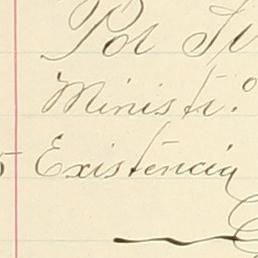 Pol
Minist.º
Existência